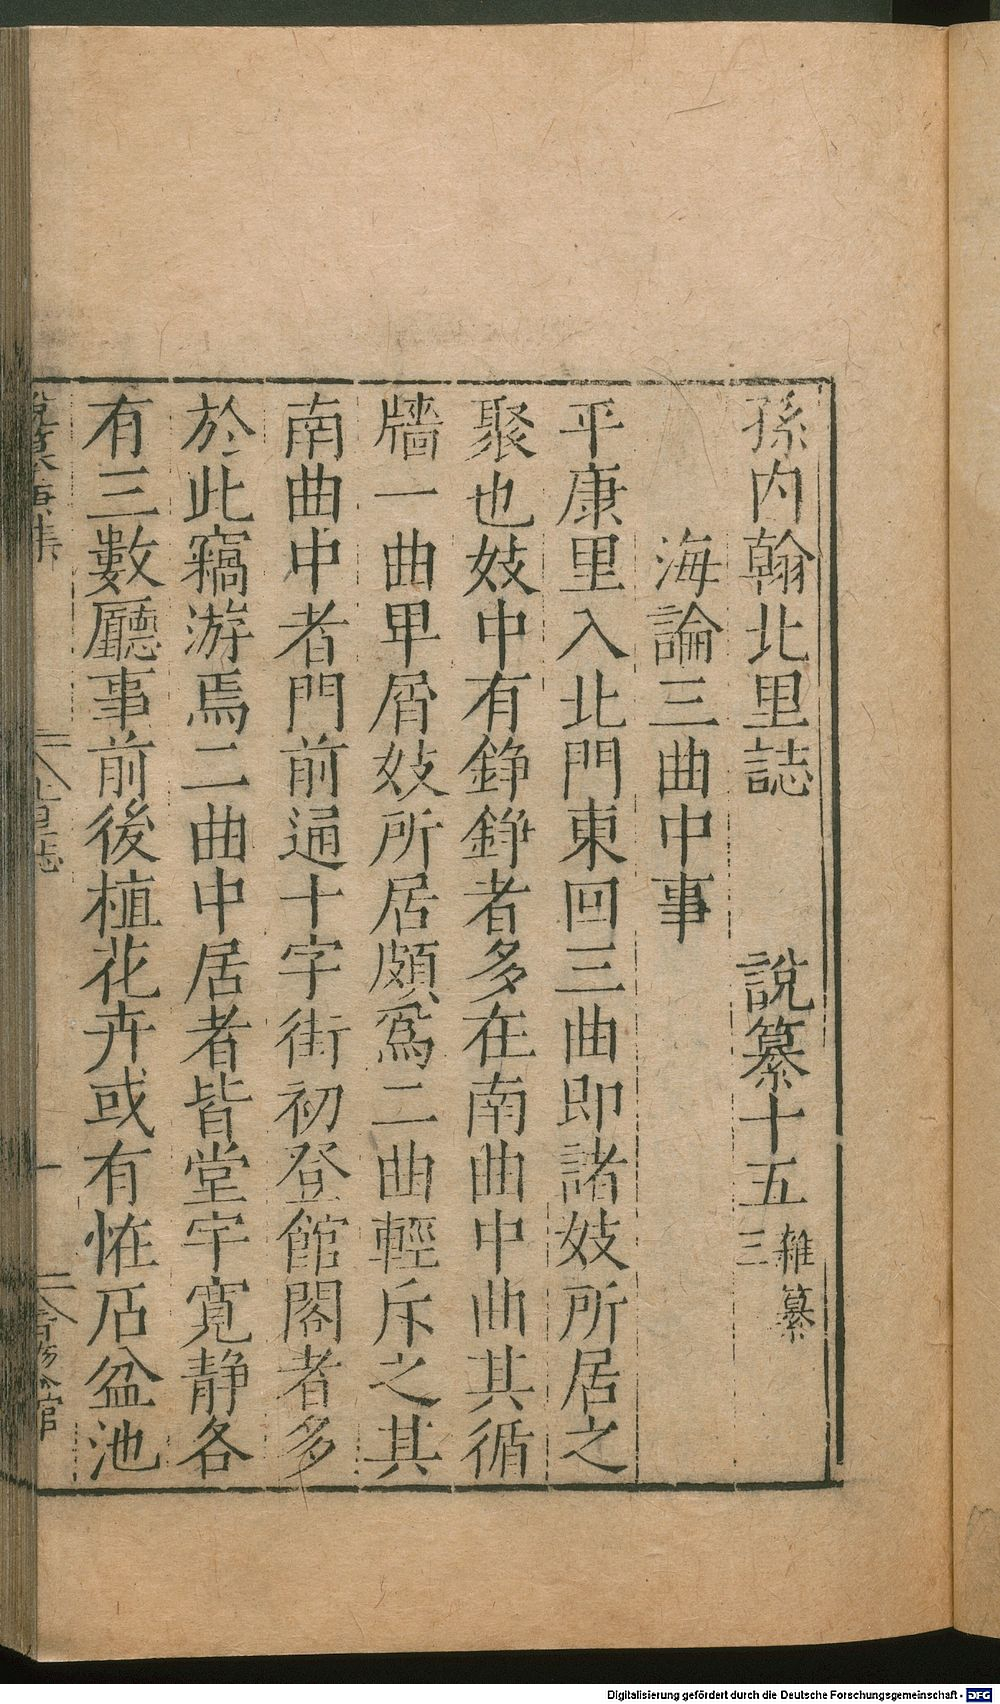 孫内翰北里誌 說纂十五 雜纂三
海論三曲中事
平康里入北門東回三曲即諸妓所居之
聚也妓中有錚錚者多在南曲中曲其循
牆一曲卑屑妓所居頗爲二曲輕斥之其
南曲中者門前通十字街初登館閣者多
於此竊游焉二曲中居者皆堂宇寬静各
有三數廳事前後植花卉或有恠石盆池
Digitalisierung gefördert durch die Deutsche Forschungsgemeinschaft - DFG